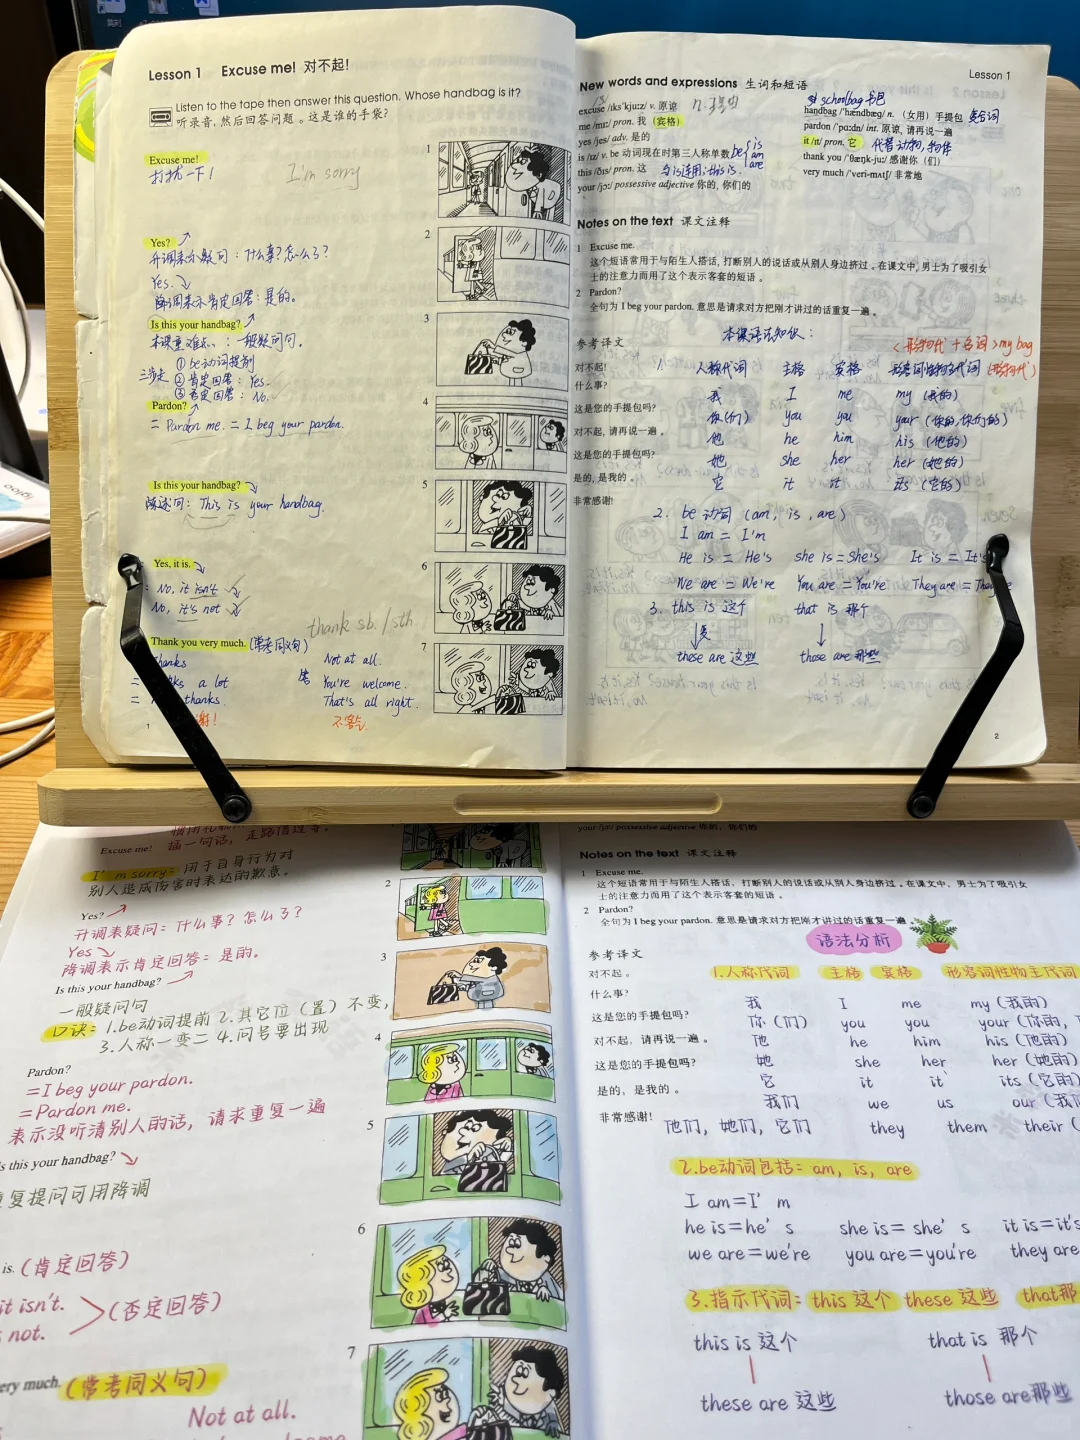 Lesson 1 Excuse me! 对不起!
Listen to the tape then answer this question. Whose handbag is it?
听录音,然后回答问题。这是谁的手袋?
Excuse me!
打扰一下!
I'm sorry
Yes?
升调表示疑问:什么事?怎么了?
Yes.
降调表示肯定回答:是的。
Is this your handbag?
本课重难点:一般疑问句。
三步走
① be动词提前
② 肯定回答:Yes.
③ 否定回答:No.
Pardon?
= Pardon me. = I beg your pardon.
Is this your handbag?
陈述句:This is your handbag.
Yes, it is.
No, it isn't
No, it's not
thank sb./sth.
Thank you very much.(常考同义句)
Not at all.
答 You're welcome.
= a lot
That's all right.
= thanks.
谢!
不客气
1
2
3
4
5
6
7
1
Lesson 1
New words and expressions 生词和短语
excuse /ɪks'kju:z/ v. 原谅
me /mi:/ pron. 我(宾格)
yes /jes/ adv. 是的
is /ɪz/ v. be 动词现在时第三人称单数 be is am are
this /ðɪs/ pron. 这 与is连用:this is.
your /jɔ:/ possessive adjective 你的,你们的
schoolbag 书包
handbag /'hændbæg/ n.(女用)手提包 复合词
pardon /'pɑ:dn/ int. 原谅,请再说一遍
it /ɪt/ pron. 它 代替动物,物体
thank you /'θæŋk-ju:/ 感谢你(们)
very much /'veri-mʌtʃ/ 非常地
Notes on the text 课文注释
1 Excuse me.
这个短语常用于与陌生人搭话,打断别人的说话或从别人身边挤过。在课文中,男士为了吸引女
士的注意力而用了这个表示客套的短语。
2 Pardon?
全句为 I beg your pardon. 意思是请求对方把刚才讲过的话重复一遍。
参考译文
对不起!
什么事?
这是您的手提包吗?
对不起,请再说一遍。
这是您的手提包吗?
是的,是我的。
非常感谢!
本课语法知识:
<形物代+名词>my bag
1. 人称代词 主格 宾格 形容词性物主代词(形物代)
我 I me my (我的)
你(们) you you your (你的,你们的)
他 he him his (他的)
她 she her her (她的)
它 it it its (它的)
2. be 动词 (am, is, are)
I am = I'm
He is = He's she is = She's It is = It's
We are = We're You are = You're They are =
3. this is 这个 that is 那个
变
these are 这些 those are 那些
2
插一句话,走路借过等。
Excuse me!
I'm sorry: 用于自身行为对
别人造成伤害时表达的歉意。
Yes?
升调表疑问:什么事?怎么了?
Yes
降调表示肯定回答:是的。
Is this your handbag?
一般疑问句
口诀:1.be动词提前 2.其它位(置)不变,
3.人称一变二 4.问号要出现
Pardon?
=I beg your pardon.
=Pardon me.
表示没听清别人的话,请求重复一遍
s this your handbag?
复提问可用降调
is.(肯定回答)
it isn't.
(否定回答)
not.
ery much.(常考同义句)
Not at all.
2
3
4
5
6
7
your /jɔ:/ possessive adjective 你的,你们的
Notes on the text 课文注释
1 Excuse me.
这个短语常用于与陌生人搭话,打断别人的说话或从别人身边挤过。在课文中,男士为了吸引女
士的注意力而用了这个表示客套的短语。
2 Pardon?
全句为 I beg your pardon. 意思是请求对方把刚才讲过的话重复一遍。
语法分析
参考译文
对不起。
什么事?
这是您的手提包吗?
对不起,请再说一遍。
这是您的手提包吗?
是的,是我的。
非常感谢!
1.人称代词 主格 宾格 形容词性物主代词
我 I me my(我的)
你(们) you you your(你的,
他 he him his(他的)
她 she her her(她的)
它 it it its(它的)
我们 we us our(我们
他们,她们,它们 they them their(
2.be动词包括:am, is, are
I am=I'm
he is=he's she is=she's it is=it's
we are=we're you are=you're they are
3.指示代词:this 这个 these 这些 that那
this is 这个 that is 那个
these are 这些 those are那些